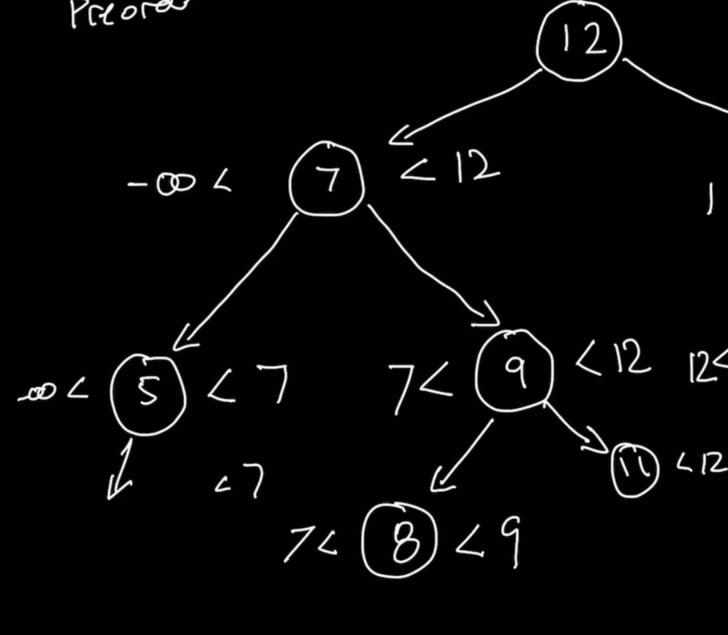 Preorder
12
-∞ < 7 < 12
1
-∞ < 5 < 7
7 < 9 < 12
12 <
< 7
11 < 12
7 < 8 < 9